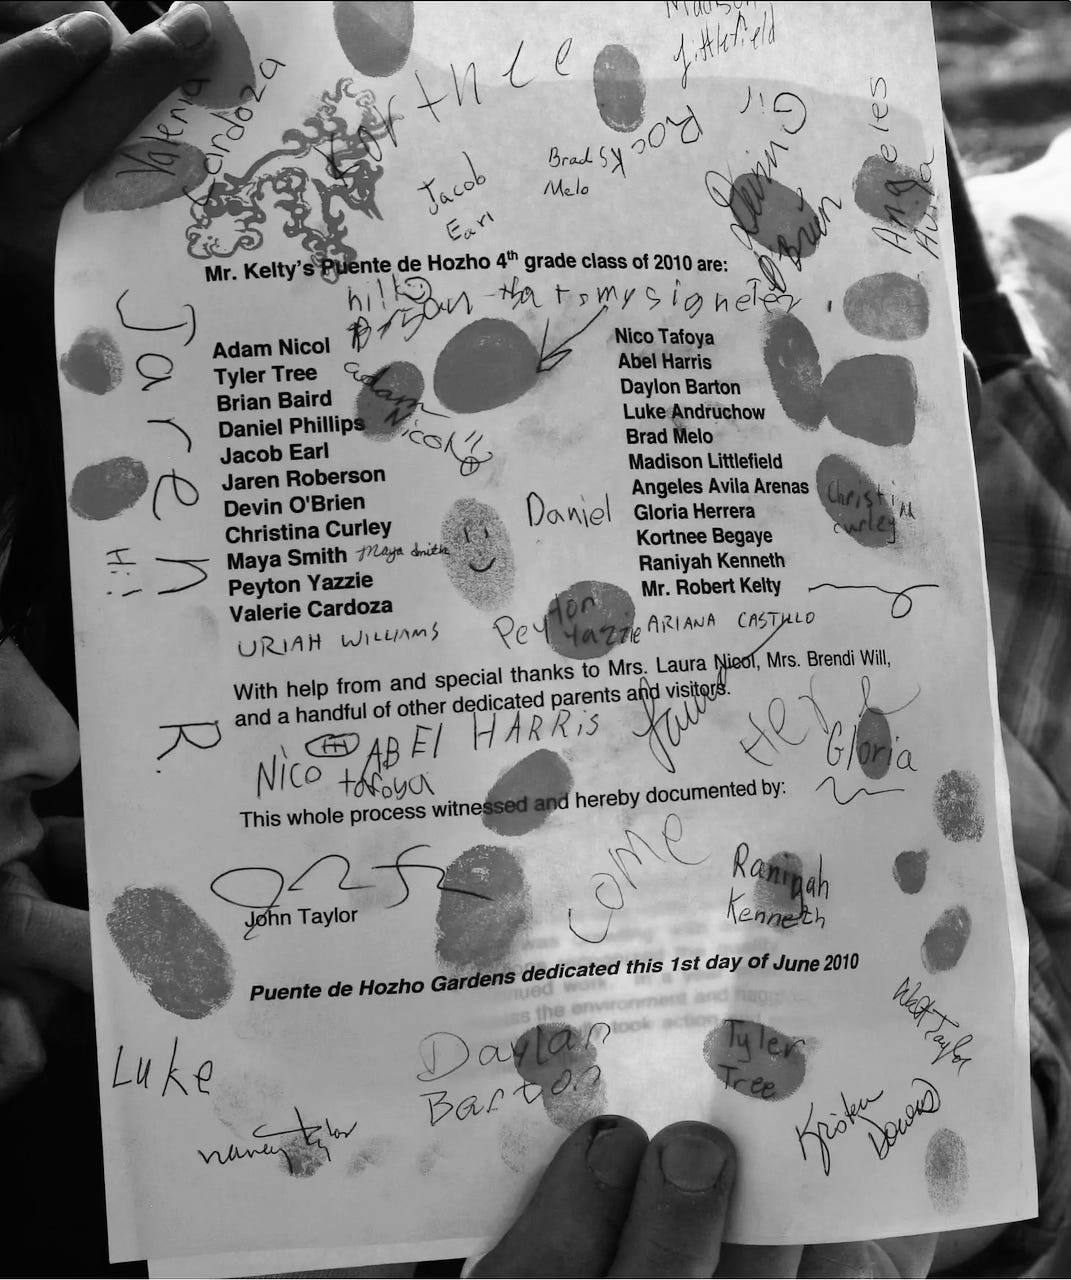 Madison
Littlefield
Valeria
Cardoza
Jacob
Earl
Brad
Melo
Rocky
Devin
O'Brien
Angeles
Avila
Mr. Kelty's Puente de Hozho 4th grade class of 2010 are:
hi!!
Brian that is my signeter
Jaren
R.
Hi!
Adam Nicol
Tyler Tree
Brian Baird
Daniel Phillips
Jacob Earl
Jaren Roberson
Devin O'Brien
Christina Curley
Maya Smith Maya Smith
Peyton Yazzie
Valerie Cardoza
adam
Nicol
Daniel
Nico Tafoya
Abel Harris
Daylon Barton
Luke Andruchow
Brad Melo
Madison Littlefield
Angeles Avila Arenas
Gloria Herrera
Kortnee Begaye
Raniyah Kenneth
Mr. Robert Kelty
Christina
curley
URIAH WILLIAMS
Peyton
Yazzie
ARIANA CASTILLO
With help from and special thanks to Mrs. Laura Nicol, Mrs. Brendi Will,
and a handful of other dedicated parents and visitors.
Nico
tafoya
ABEl HARRiS
Gloria
This whole process witnessed and hereby documented by:
John Taylor
come
Raniyah
Kenneth
Puente de Hozho Gardens dedicated this 1st day of June 2010
Luke
Daylan
Barton
Tyler
Tree
Walt Taylor
nancy taylor
Kristen